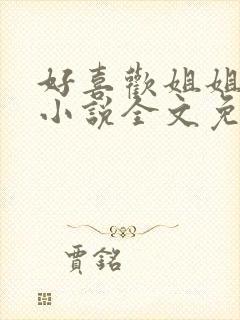 好喜歡姐姐
小說全文免
賈銘